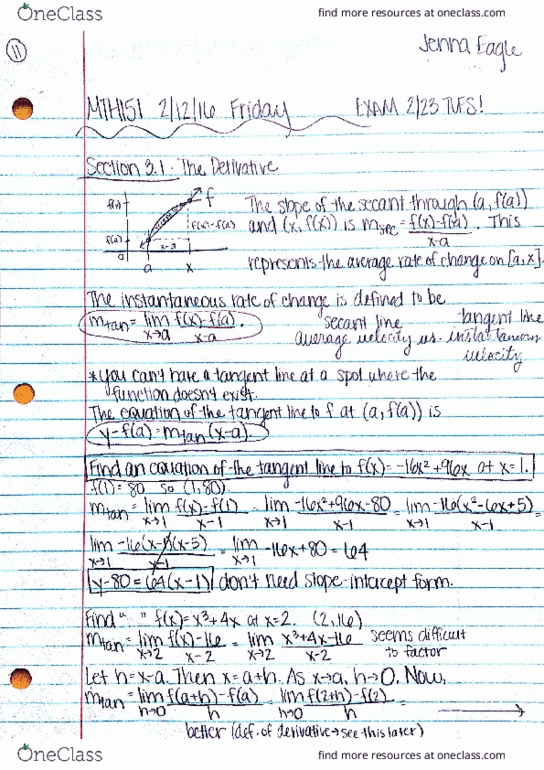 OneClass find more resources at oneclass.com
11 Jenna Eagle
MTH151 2/12/16 Friday EXAM 2/23 TUES!
Section 3.1. The Derivative
f(x) f The slope of the secant through (a, f(a))
f(x)-f(a) and (x, f(x)) is m_sec = f(x)-f(a)/x-a. This
f(a) x-a
0 a x represents the average rate of change on [a,x].
The instantaneous rate of change is defined to be
m_tan = lim x→a f(x)-f(a)/x-a. secant line tangent line
average velocity vs. instantaneous
velocity
*you can't have a tangent line at a spot where the
function doesn't exist.
The equation of the tangent line to f at (a, f(a)) is
y-f(a)=m_tan(x-a)
Find an equation of the tangent line to f(x)=-16x²+96x at x=1.
f(1)=80 so (1,80)
m_tan = lim x→1 f(x)-f(1)/x-1 = lim x→1 -16x²+96x-80/x-1 = lim x→1 -16(x²-6x+5)/x-1 =
lim x→1 -16(x-1)(x-5)/x-1 = lim x→1 -16x+80 = 64
y-80=64(x-1) don't need slope-intercept form.
Find " " f(x)=x³+4x at x=2. (2,16)
m_tan = lim x→2 f(x)-16/x-2 = lim x→2 x³+4x-16/x-2 seems difficult
to factor
Let h=x-a. Then x=a+h. As x→a, h→0. Now,
m_tan = lim h→0 f(a+h)-f(a)/h = lim h→0 f(2+h)-f(2)/h = →
better (def. of derivative→see this later)
OneClass find more resources at oneclass.com